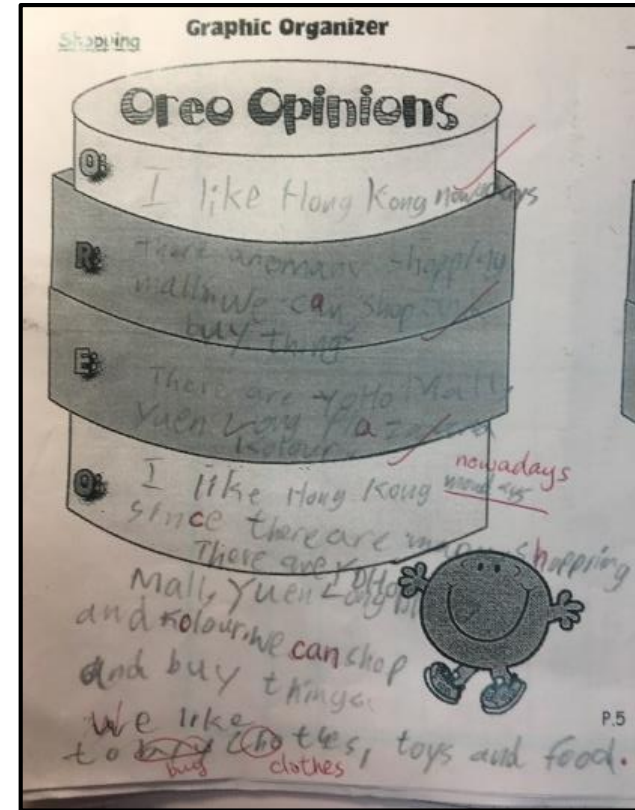 Graphic Organizer
Shopping
Oreo Opinions
O:
I like Hong Kong nowadays
R:
There are many shopping
malls. We can shop and
buy things
E:
There are YoHo Mall,
Yuen Long Plaza and
Kolour.
nowadays
O:
I like Hong Kong
since there are many shopping
There are YOHO
Mall, Yuen Long
and Kolour. We can shop
and buy things.
We like
P.5
to clothes, toys and food.
buy clothes